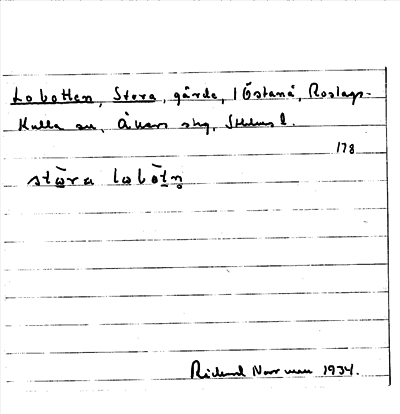 Lobotten, Stora, gärde, 1 Östanå, Roslags-
Kulla sn, Åkers skg, Sthlms l.
178
stōra lobōtn̥
Richard Norrman 1934.